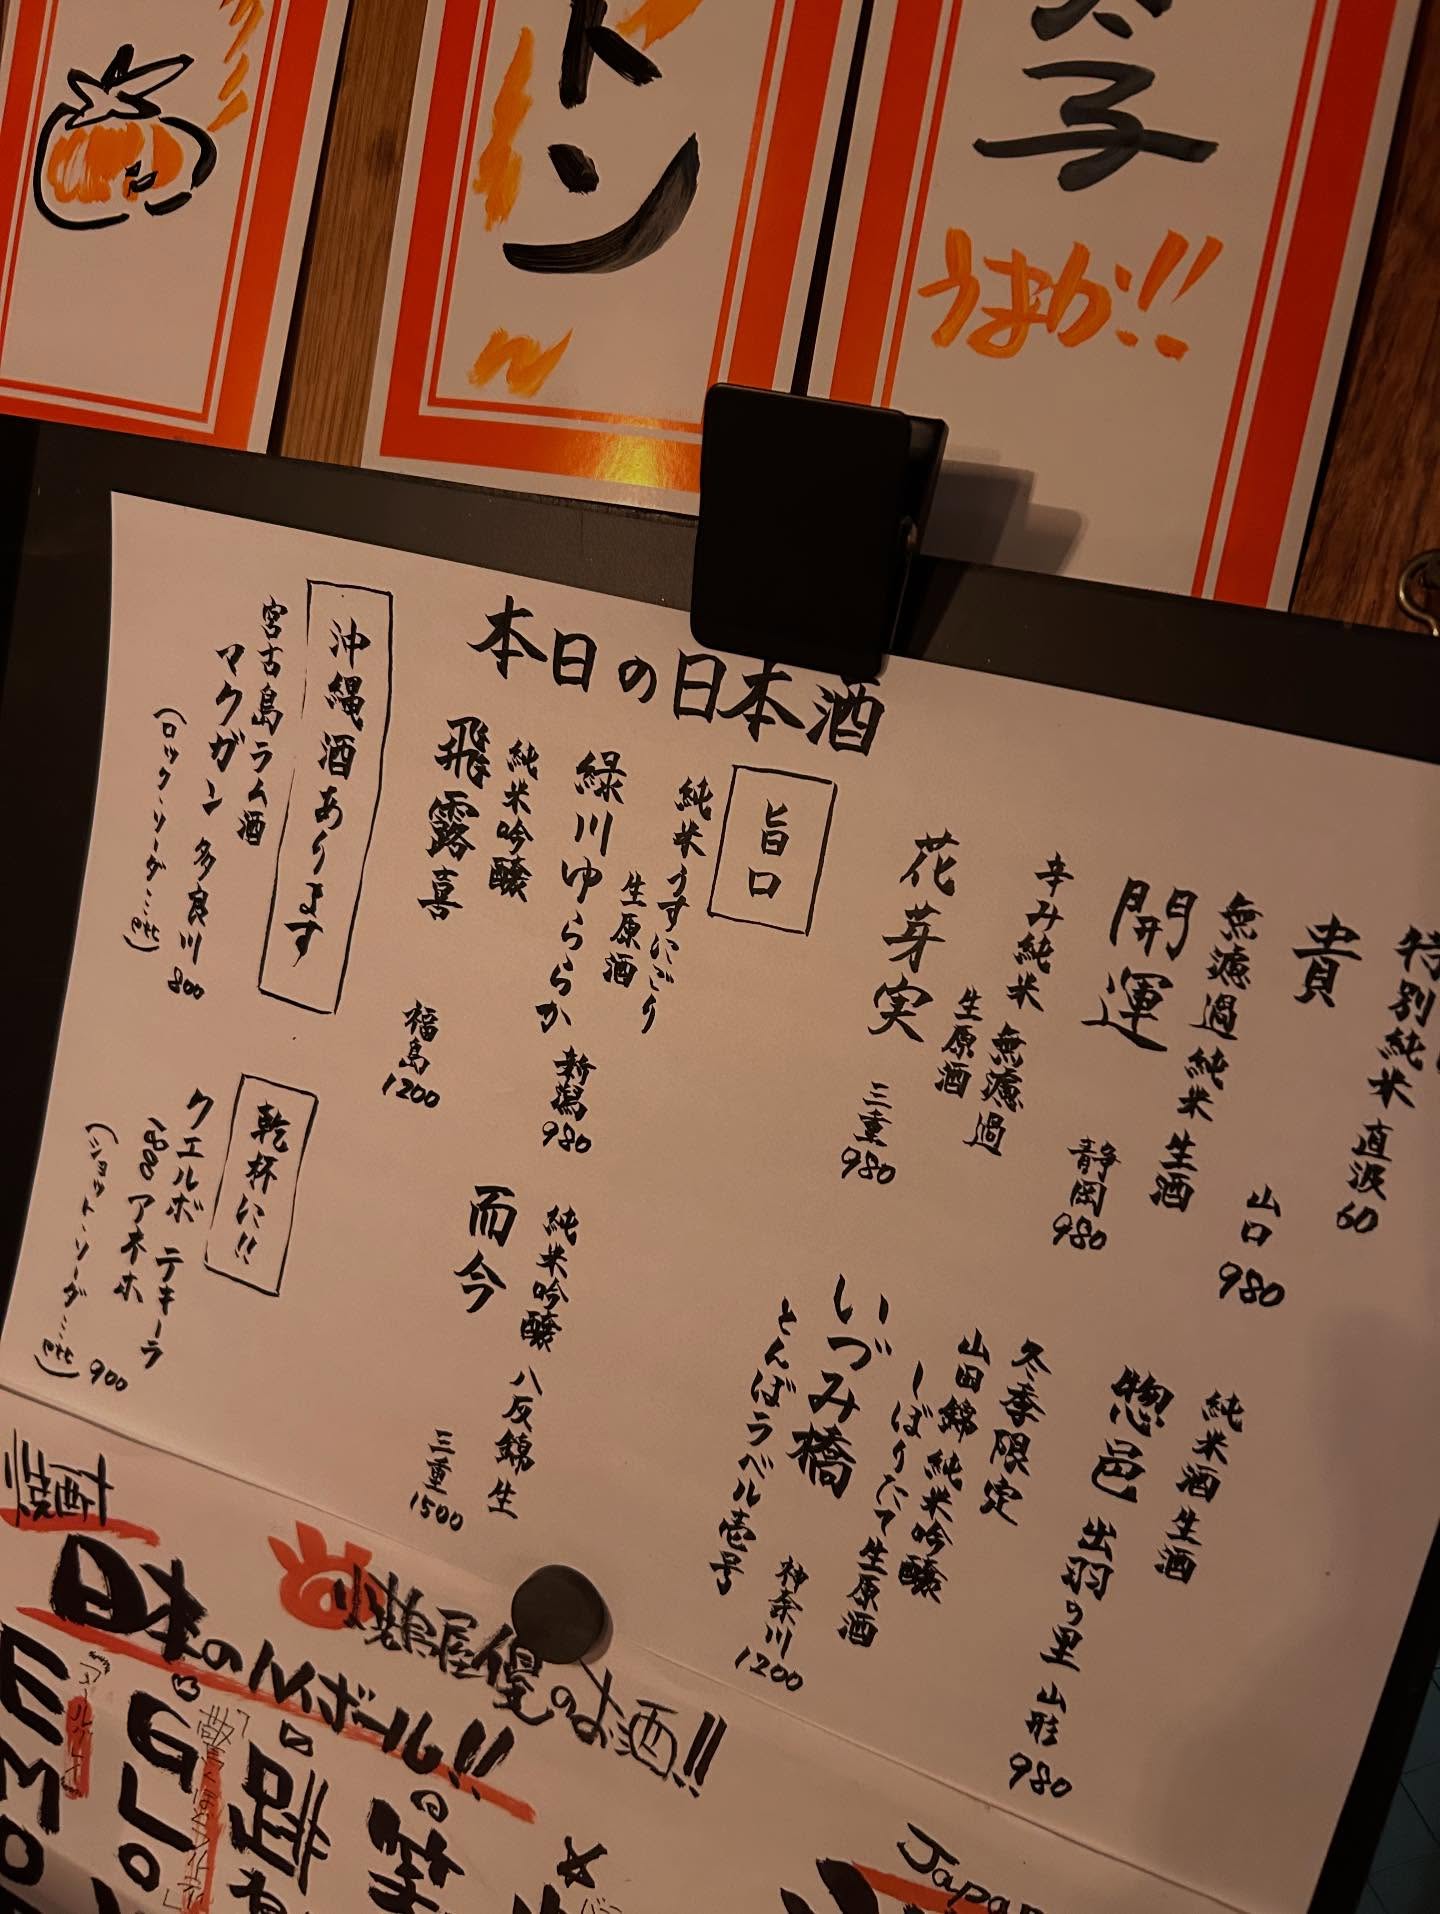 トン
子
うまか!!
本日の日本酒
特別純米 直汲60
貴
山口
980
無濾過 純米 生酒
開運
静岡
980
辛み純米 無濾過
生原酒
花芽実
三重
980
純米酒 生酒
惣邑 出羽の里
山形
980
冬季限定
山田錦 純米吟醸
しぼりたて生原酒
いづみ橋
とんぼラベル壱号
神奈川
1200
旨口
純米うすにごり
生原酒
緑川ゆららか
新潟
980
純米吟醸
飛露喜
福島
1200
純米吟醸 八反錦 生
而今
三重
1500
沖縄酒あります
宮古島ラム酒
マクガン 多良川
800
(ロック・ソーダ…etc)
乾杯に!!
クエルボ テキーラ
1800アネホ
900
(ショット・ソーダ…etc)
優のお酒!!
日本の
Japan